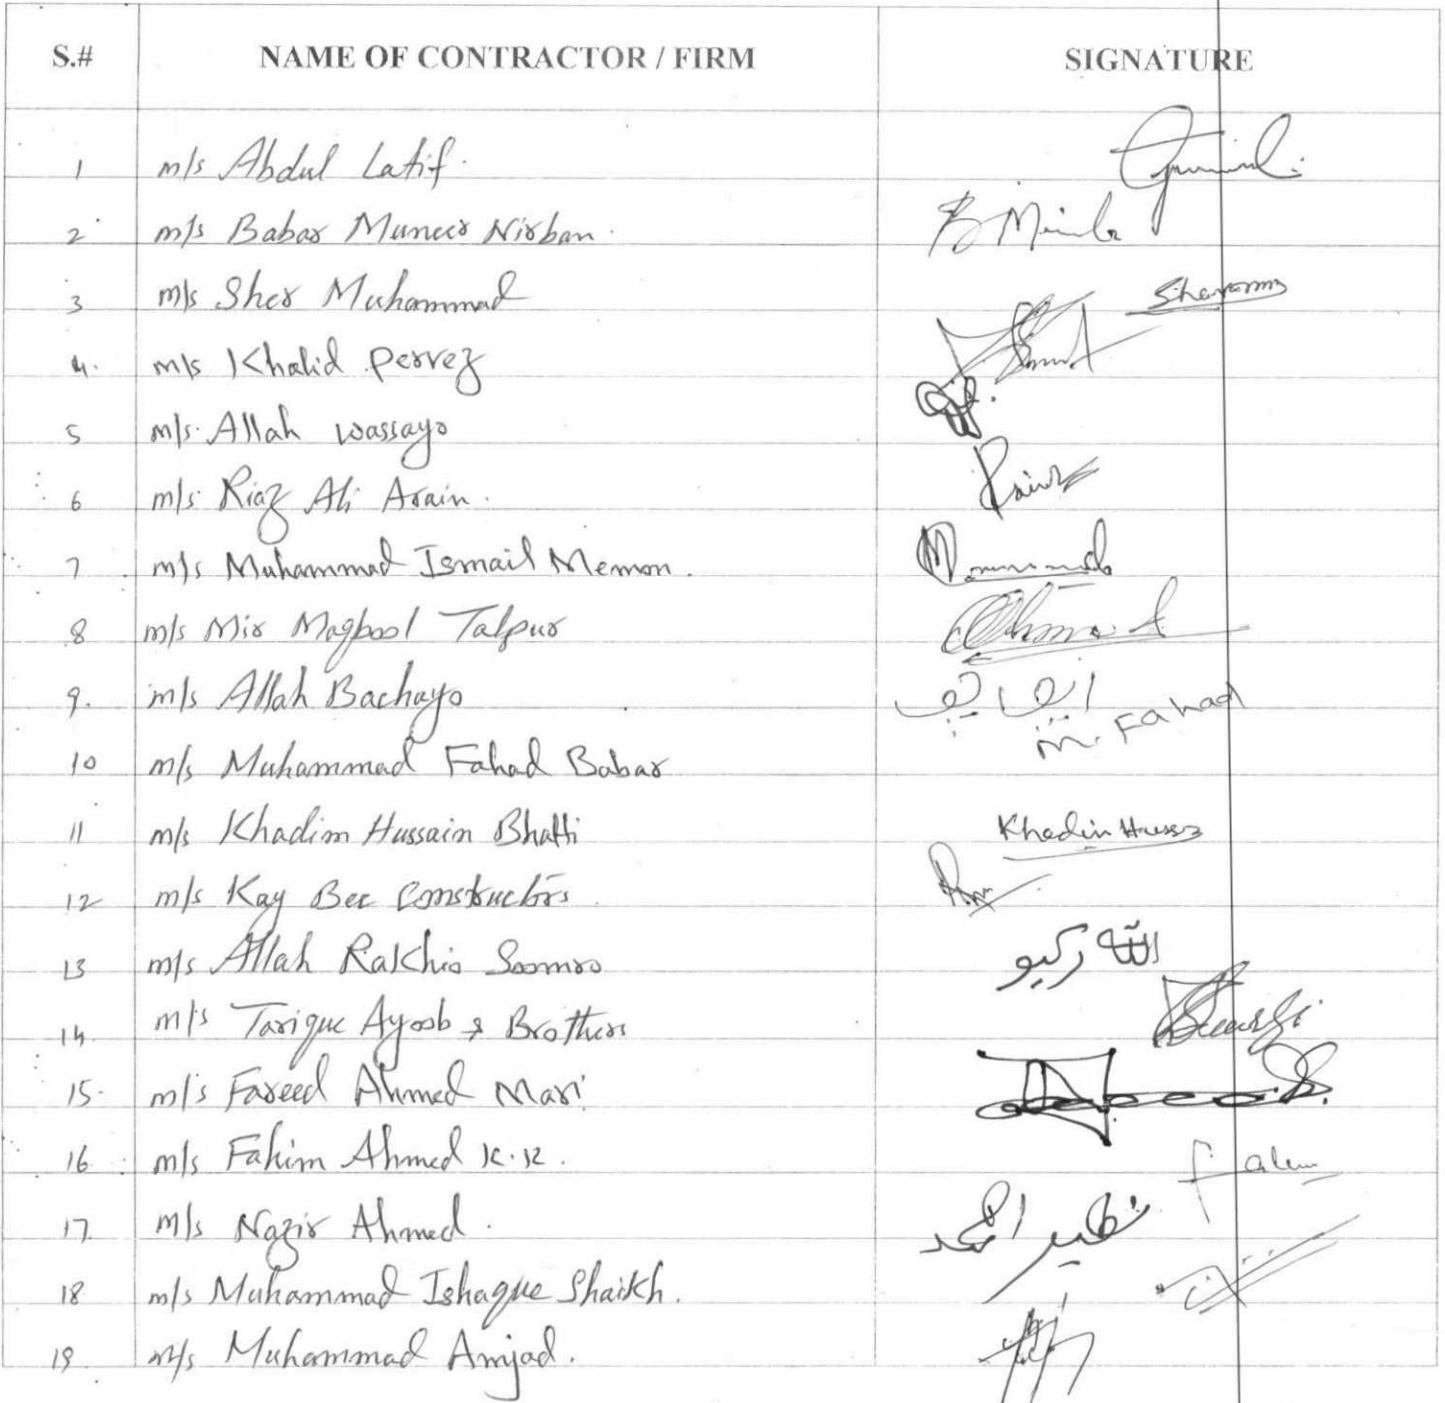 S.# NAME OF CONTRACTOR / FIRM SIGNATURE
1 m/s Abdul Latif.
2 m/s Babar Muneer Nirban.
3 m/s Sher Muhammad
4. m/s Khalid Pervez
5 m/s. Allah Wassayo
6 m/s. Riaz Ali Arain.
7 m/s Muhammad Ismail Memon.
8 m/s Mir Maqbool Talpur
9. m/s Allah Bachayo
M. Fahad
10 m/s Muhammad Fahad Babar
11 m/s Khadim Hussain Bhatti Khadim
12 m/s Kay Bee Constructors
13 m/s Allah Rakhio Soomro الله رکيو
14 m/s Tarique Ayoob & Brothers
15. m/s Fareed Ahmed Mari
16 m/s Fahim Ahmed K.K.
17 m/s Nazir Ahmed. نظير احمد
18 m/s Muhammad Ishaque Shaikh.
19 m/s Muhammad Amjad.